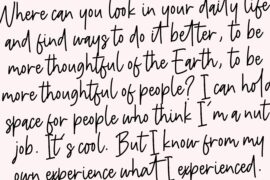 Where can you look in your daily life
and find ways to do it better, to be
more thoughtful of the Earth, to be
more thoughtful of people? I can hold
space for people who think I'm a nut
job. It's cool. But I know from my
own experience what I experienced.